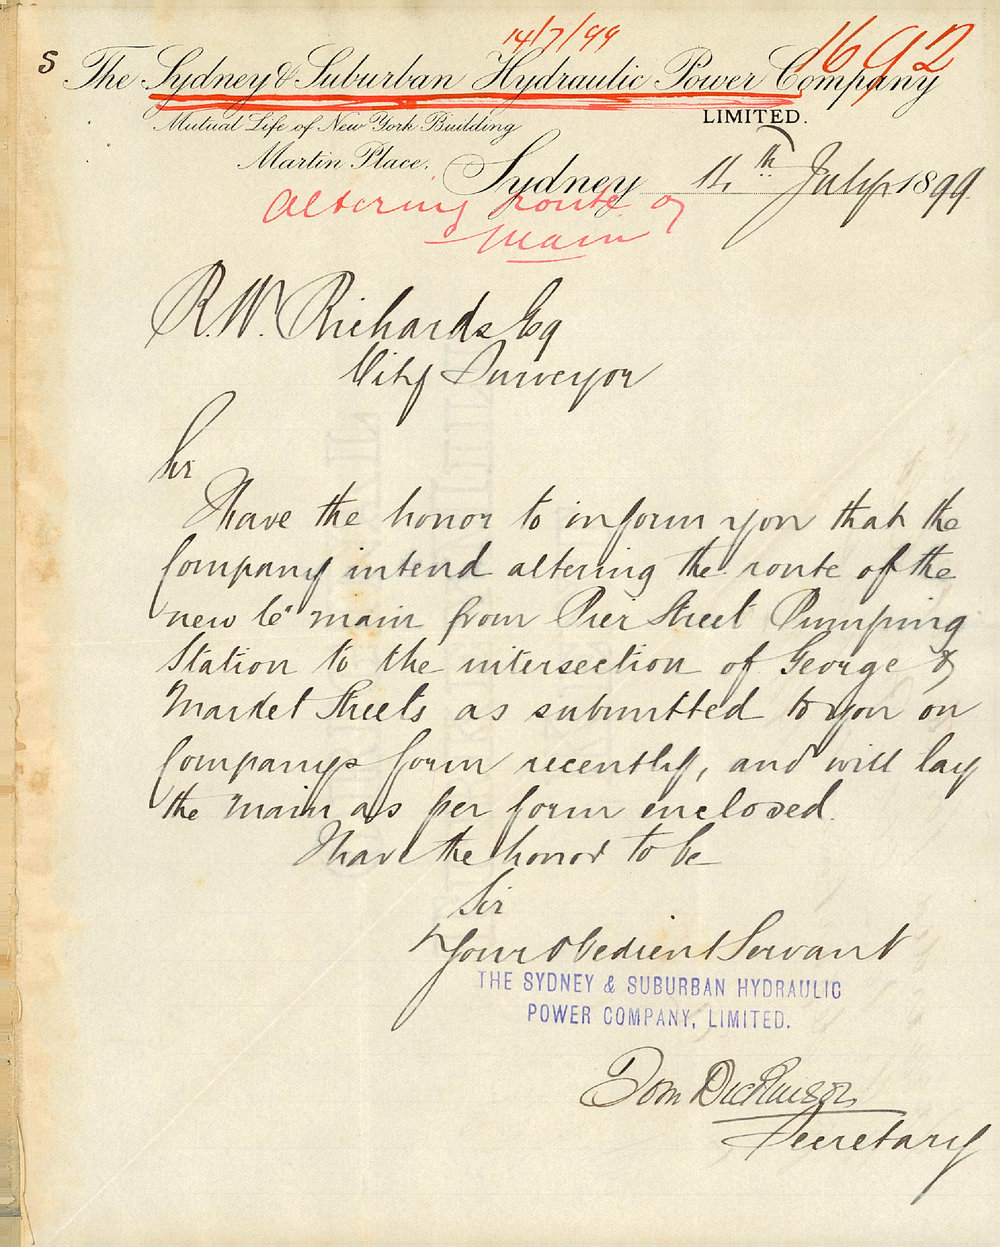 14/7/99
1692
S
The Sydney & Suburban Hydraulic Power Company
LIMITED.
Mutual Life of New York Building
Martin Place.
Sydney 14th July 1899
Altering route of
main
R. W. Richards Esq
City Surveyor
Sir
I have the honor to inform you that the
Company intend altering the route of the
new 6" main from Pier Street Pumping
Station to the intersection of George &
Market Streets as submitted to you on
Companys form recently, and will lay
the main as per form enclosed.
I have the honor to be
Sir
Your Obedient Servant
THE SYDNEY & SUBURBAN HYDRAULIC
POWER COMPANY, LIMITED.
Tom Dickinson
Secretary